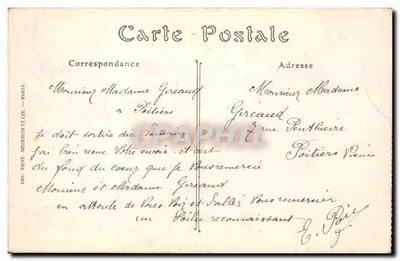 Carte Postale
Correspondance
Adresse
Monsieur Madame Gireaud
a Poitiers
Je doit sortire du
j'ai bien reçue Votre envoie et c'est
du fond du coeur que je Vous remercie
Monsieur et Madame Gireaud
en attente de Vous Voir et Vous remersier
un Poilue reconnaissant
E.
Monsieur Madame
Gireaud
7 rue Penthievre
Poitiers
IMP. PHOT. NEURDEIN ET CIE. — PARIS.